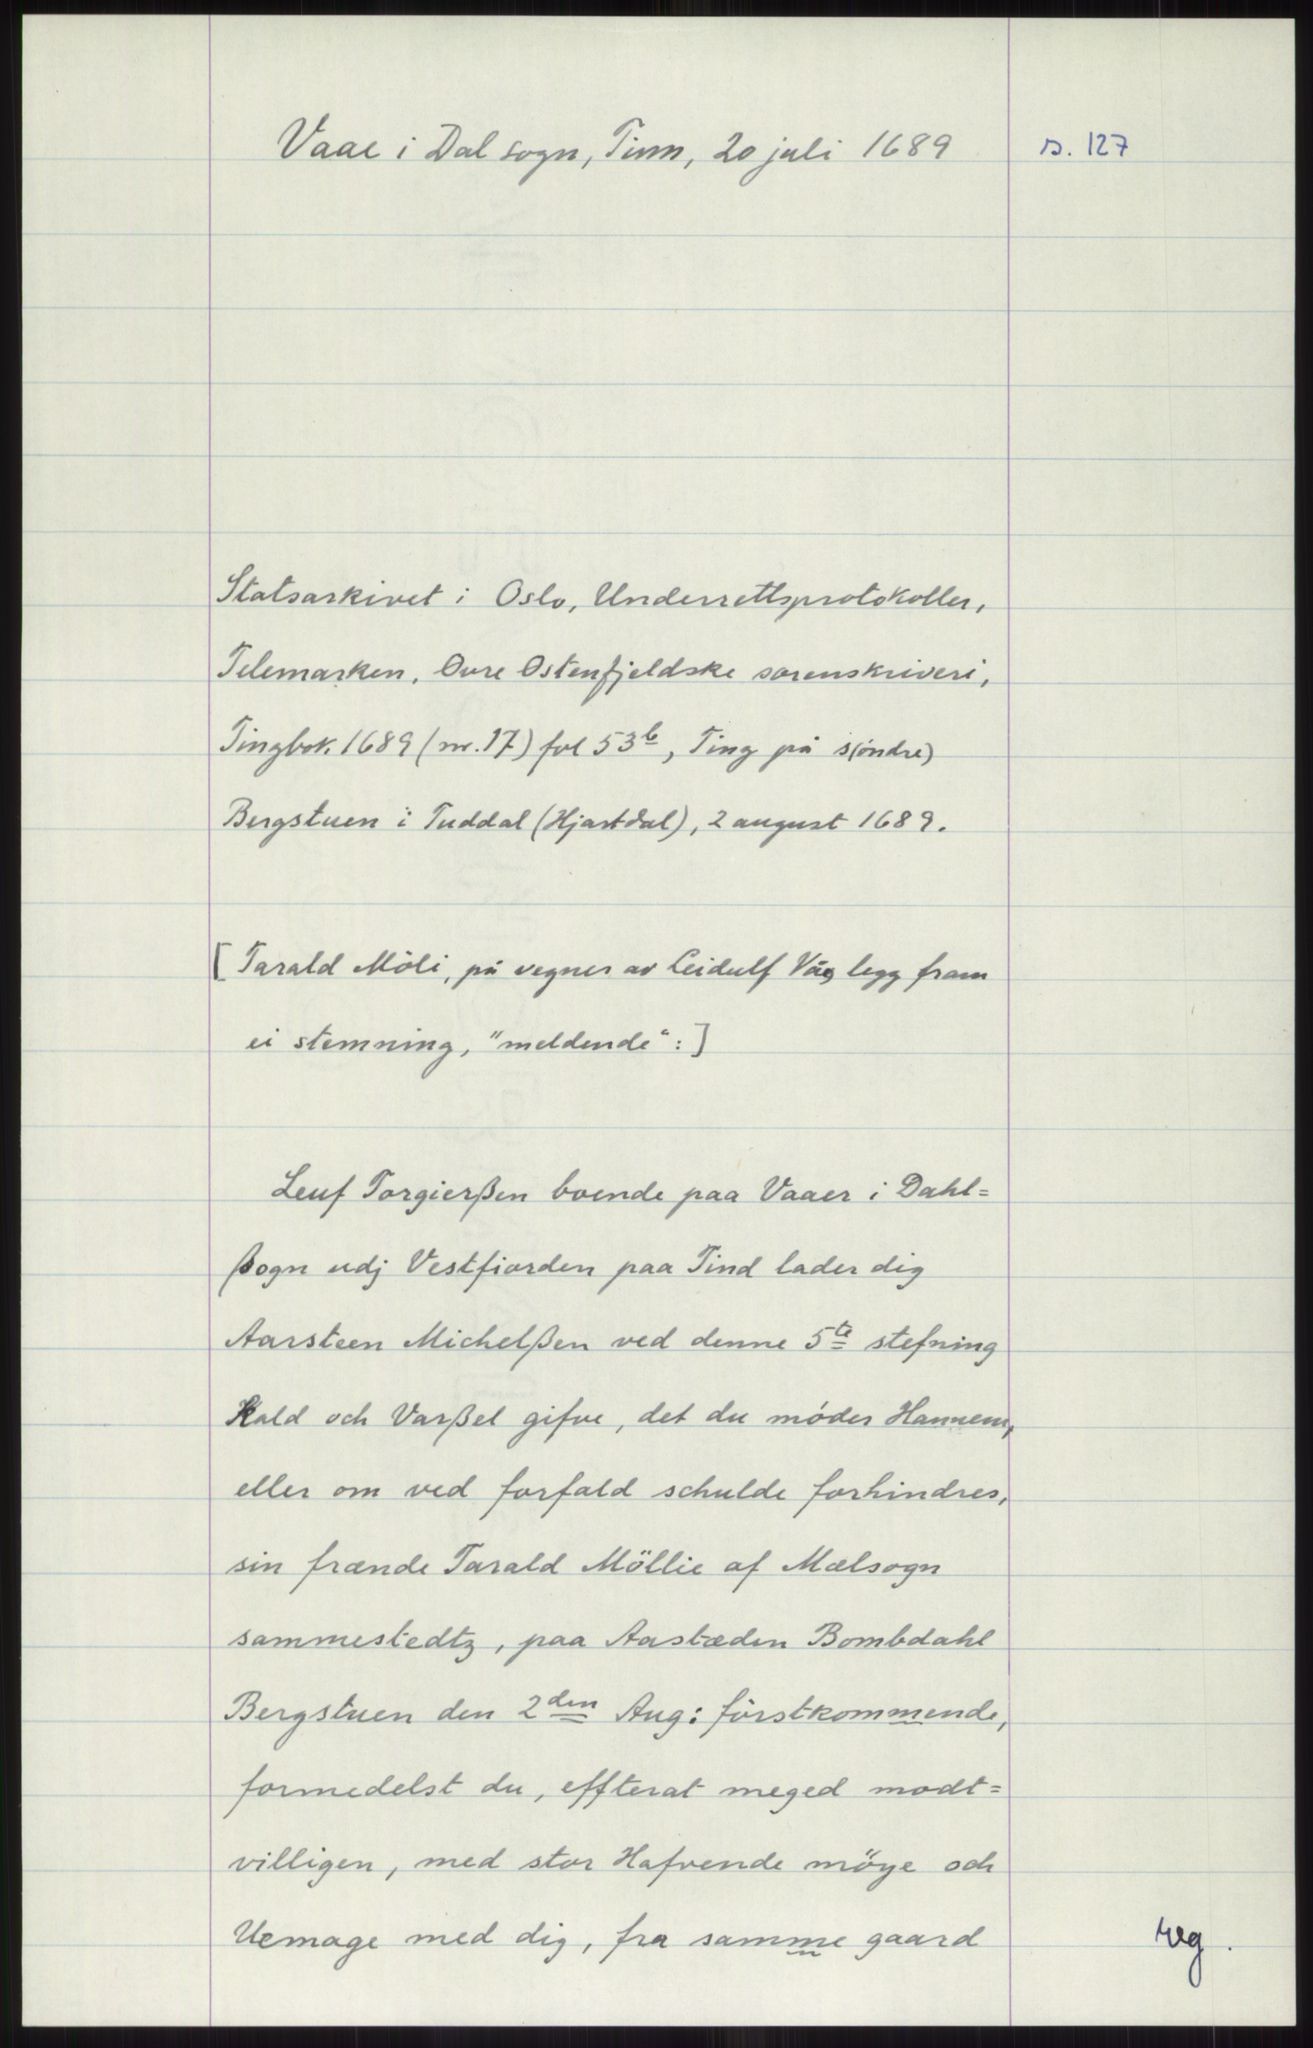 Vaae i Dal sogn, Tinn, 20 juli 1689
s. 127
Statsarkivet i Oslo, Underrettsprotokoller,
Telemarken, Øvre Østenfjeldske sorenskriveri,
Tingbok 1689 (nr. 17) fol 53b, Ting på s(öndre)
Bergstuen i Tuddal (Hjartdal), 2 august 1689.
[Tarald Möli, på vegner av Leidulf Våe, legg fram
ei stemning, "meldende":]
Leuf Torgierßen boende paa Vaaer i Dahl=
ßogn udj Vestfiorden paa Tind lader dig
Aarsteen Michelßen ved denne 5te stefning
Kald och Varßel gifve, det du móder Hannem,
eller om ved forfald schulde forhindres,
sin frænde Tarald Möllie af Mælsogn
sammestedtz, paa Aastæden Bombdahl
Bergstuen den 2den Aug: förstkommende,
formedelst du, effterat meged modt=
villigen, med stor Hafvende möye och
Uemage med dig, fra samme gaard
reg.